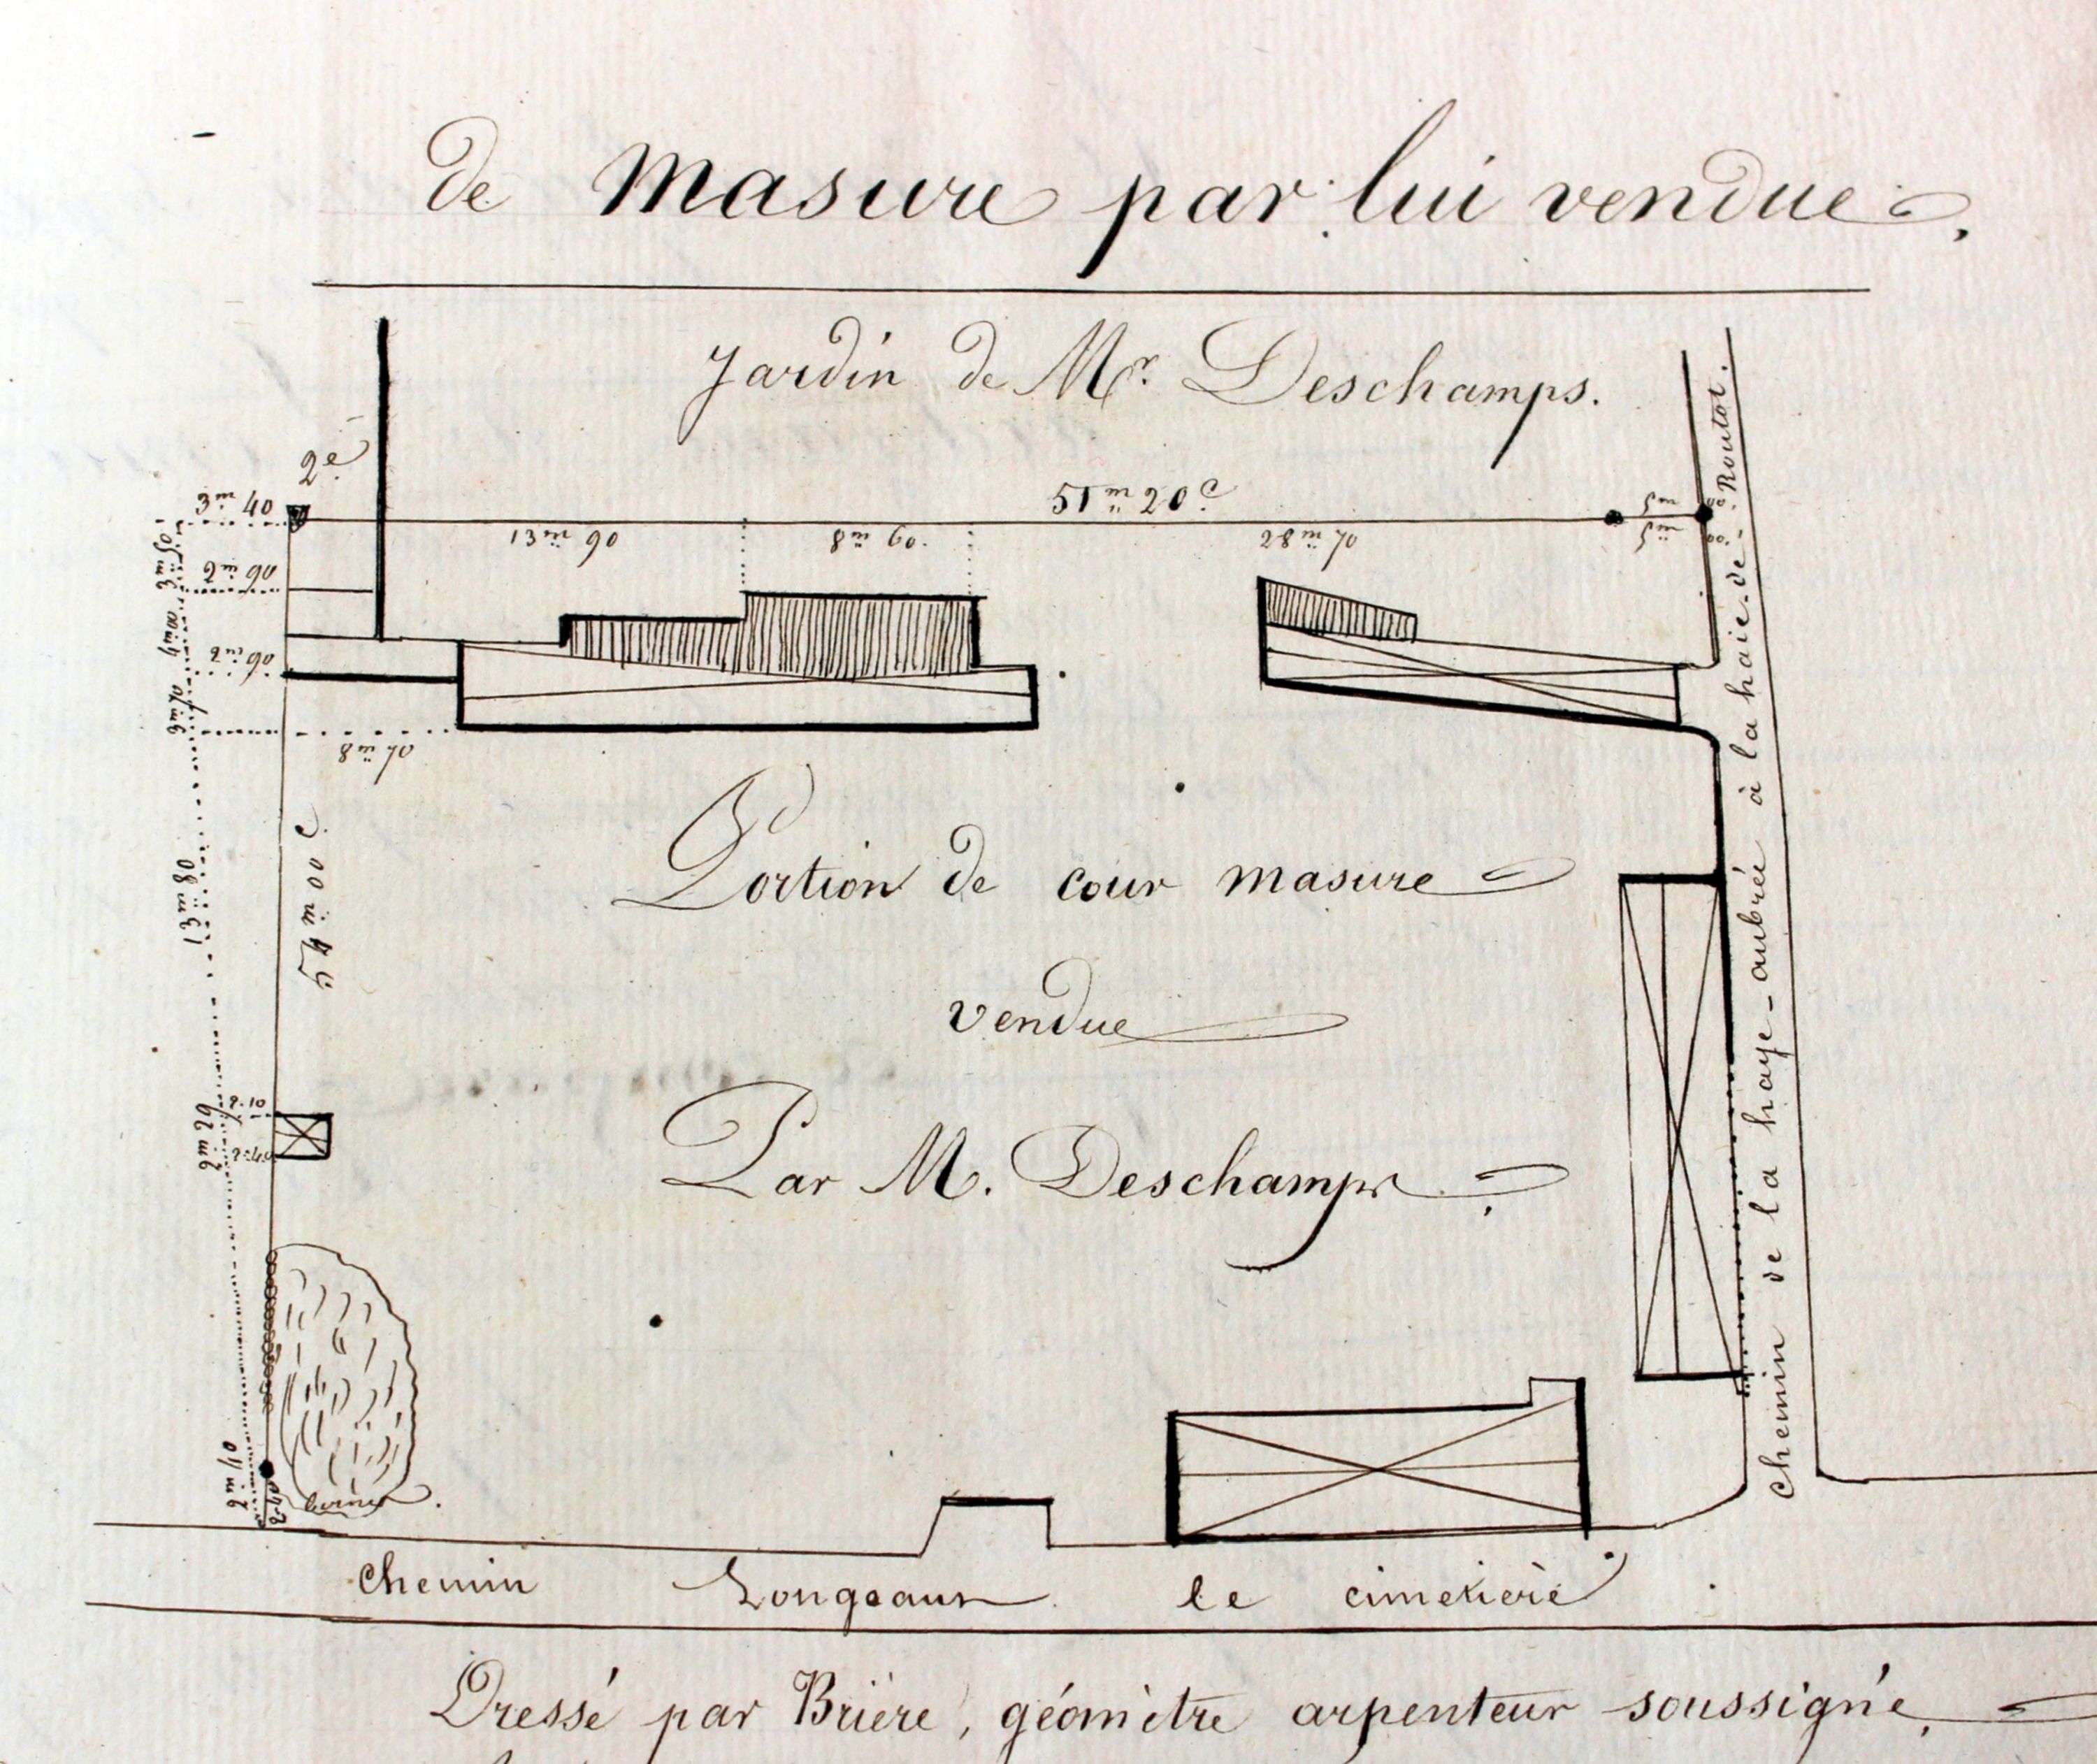 de masure par lui vendue.
Jardin de Mr. Deschamps.
2e
3m 40
51m 20c
5m 00
13m 90
8m 60
28m 70
2m 90
2m 90
8m 70
13m 80
54m 00c
Portion de cour masure
vendue
Par M. Deschamps
2.10
2.40
2m 29
2m 40
2.40
chemin de la haye-aubrée à la haie-de-Routot.
chemin Longeant le cimetière
Dressé par Brière, géomètre arpenteur soussigné,